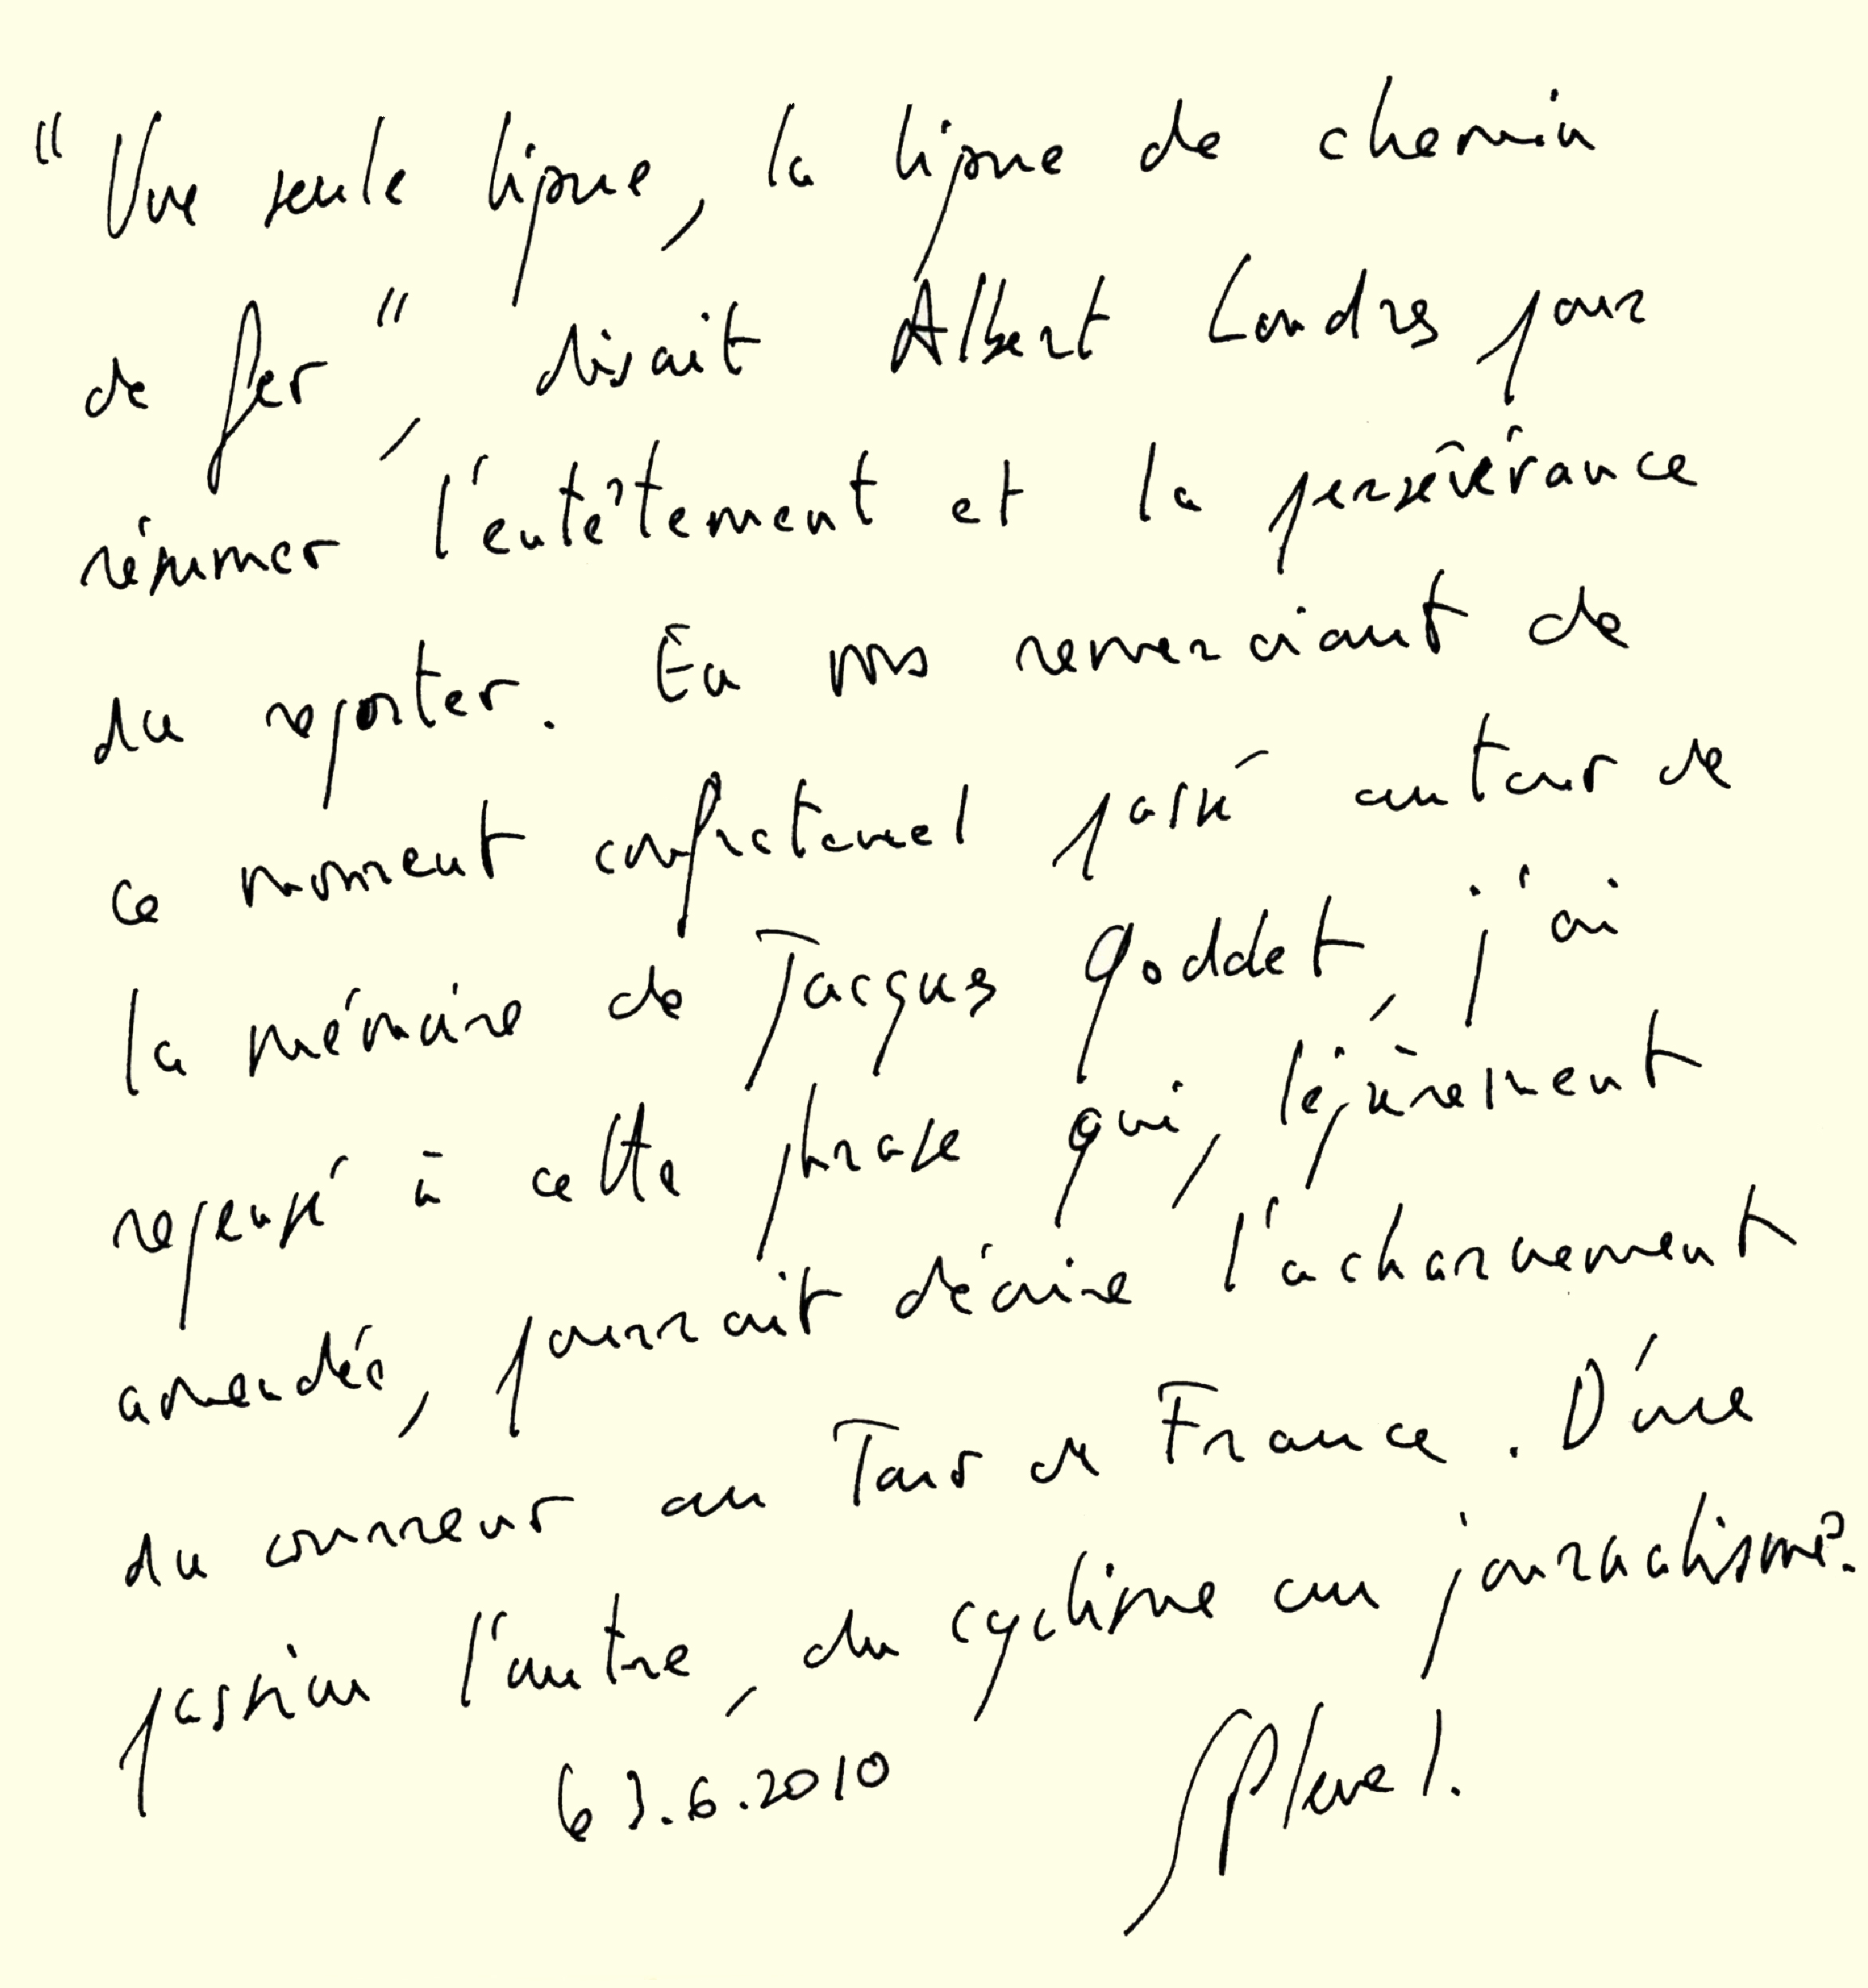 "Une seule ligne, la ligne de chemin
de fer", disait Albert Londres pour
résumer l'entêtement et la persévérance
du reporter. En vous remerciant de
ce moment confraternel passé autour de
la mémoire de Jacques Goddet, j'ai
repensé à cette phrase qui, légèrement
amendée, pourrait décrire l'acharnement
du coureur au Tour de France. D'une
passion l'autre, du cyclisme au journalisme.
le 3.6.2010
Plenel.